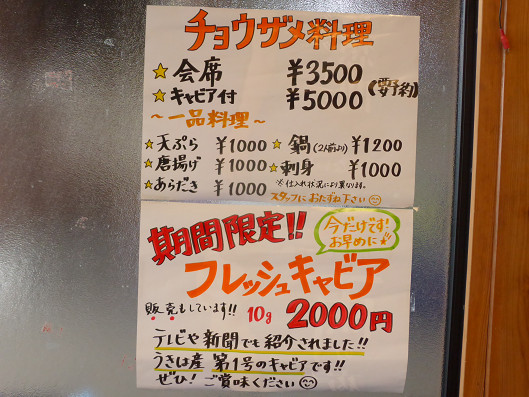 チョウザメ料理
☆会席 ¥3500
☆キャビア付 ¥5000 (要予約)
～一品料理～
☆天ぷら ¥1000 ☆鍋(2人前より) ¥1200
☆唐揚げ ¥1000 ☆刺身 ¥1000
☆あらだき ¥1000 ※仕入れ状況により異なります。
スタッフにおたずね下さい
期間限定!!
今だけです
お早めに
フレッシュキャビア
販売もしています!! 10g 2000円
テレビや新聞でも紹介されました!!
うさは産 第1号のキャビアです!!
ぜひ!ご賞味ください